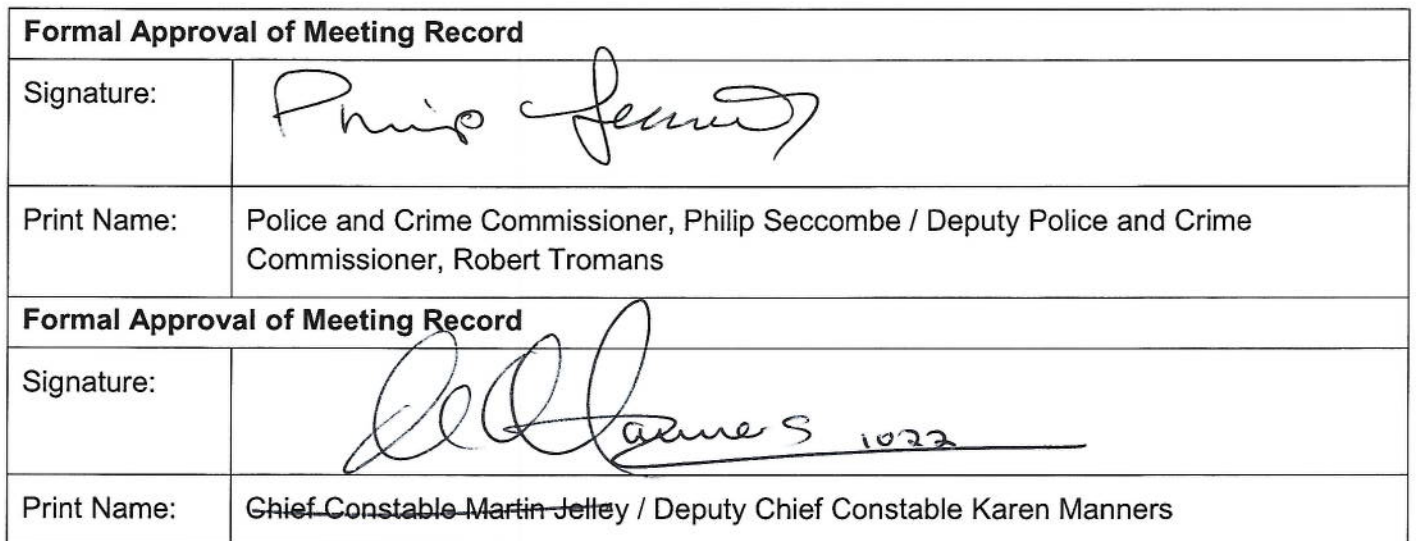 Formal Approval of Meeting Record
Signature:
Philip Seccombe
Print Name:
Police and Crime Commissioner, Philip Seccombe / Deputy Police and Crime
Commissioner, Robert Tromans
Formal Approval of Meeting Record
Signature:
Manners 1022
Print Name:
Chief Constable Martin Jelley / Deputy Chief Constable Karen Manners